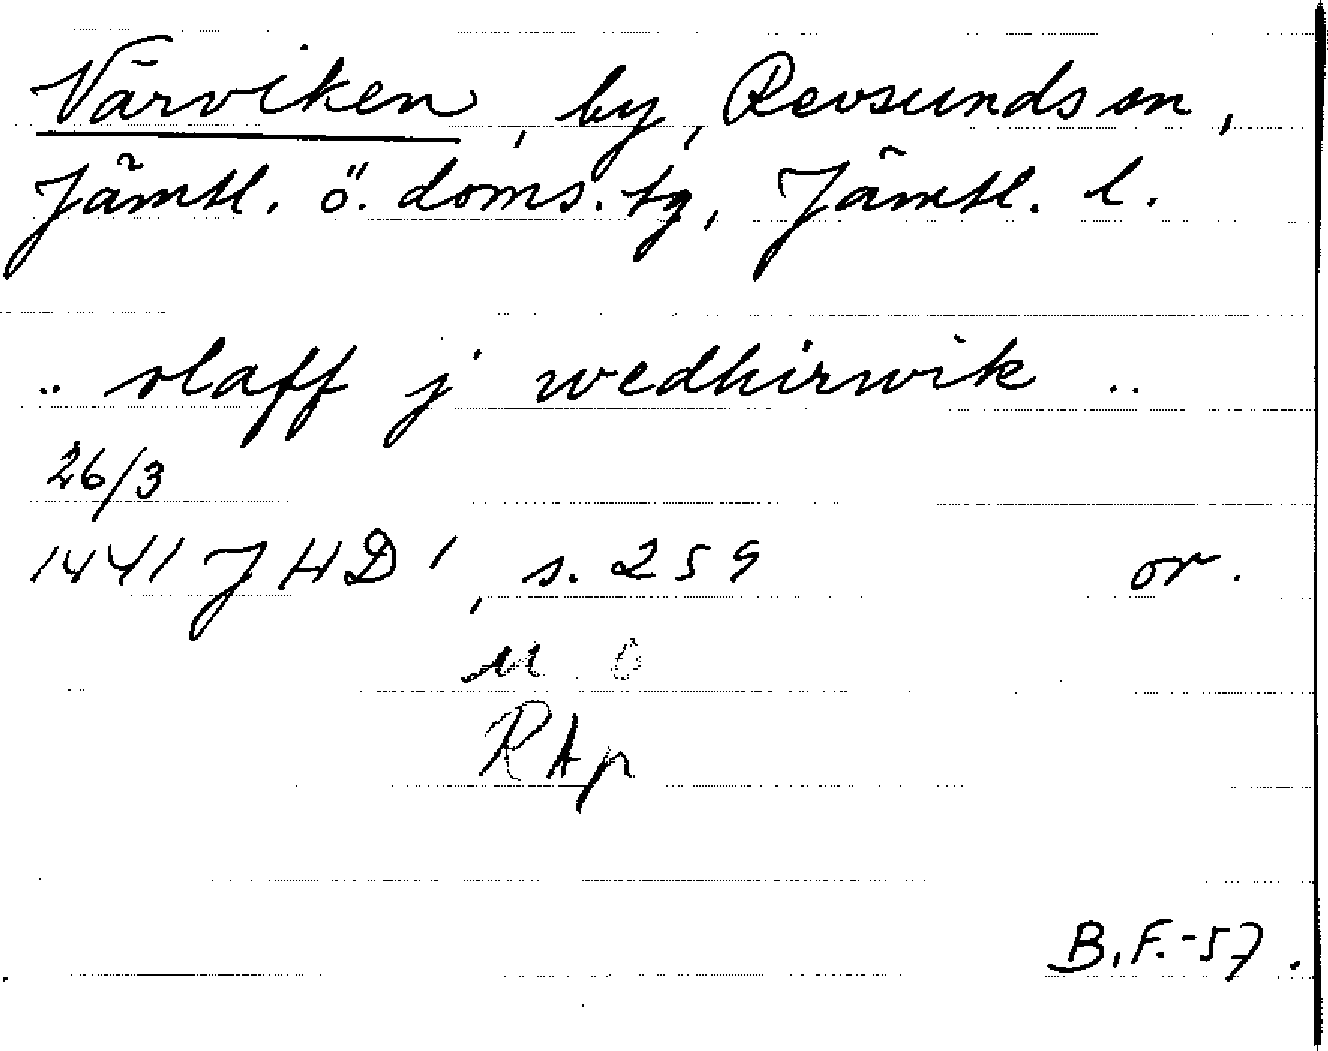 Värviken, by, Revsunds sn,
Jämtl. ö. doms. tg, Jämtl. l.
.. olaff j wedhirwik ..
26/3
1441 JHD 1, s. 259 or.
RAp
B.F.-57.